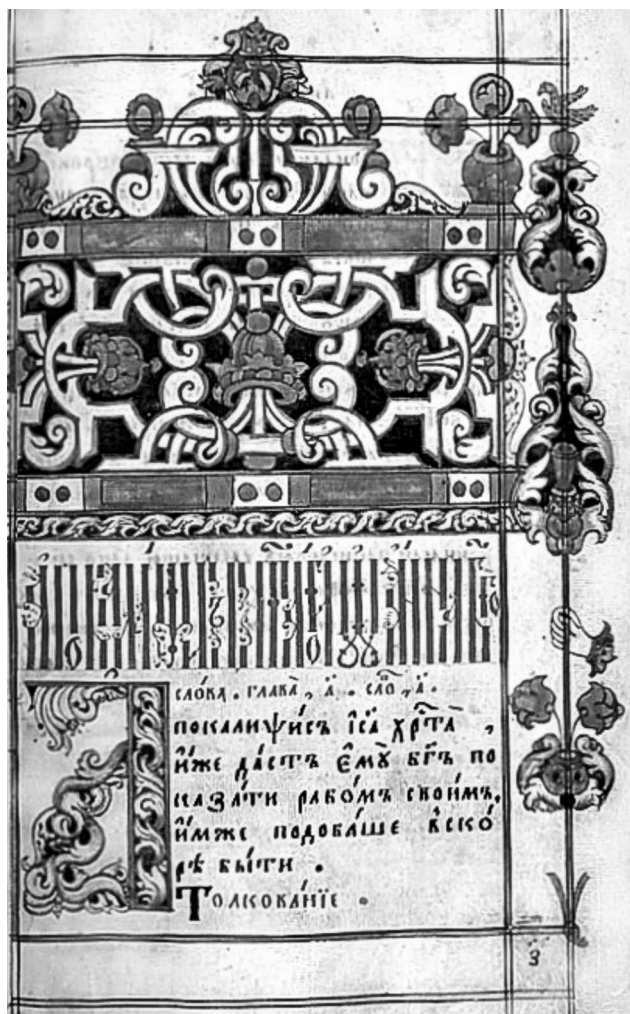 сло́ва . глава̀ , а҃ . сло҃ , а҃ .
Апокалиѱи́съ і҆с҃а хр҃та̀ ,
и҆́же да́стъ є҆мꙋ̀ бг҃ъ по
каза́ти рабо́мъ свои́мъ,
и҆́мже подоба́ше вско́
рѣ бы́ти .
Толкова́нїе .
з҃